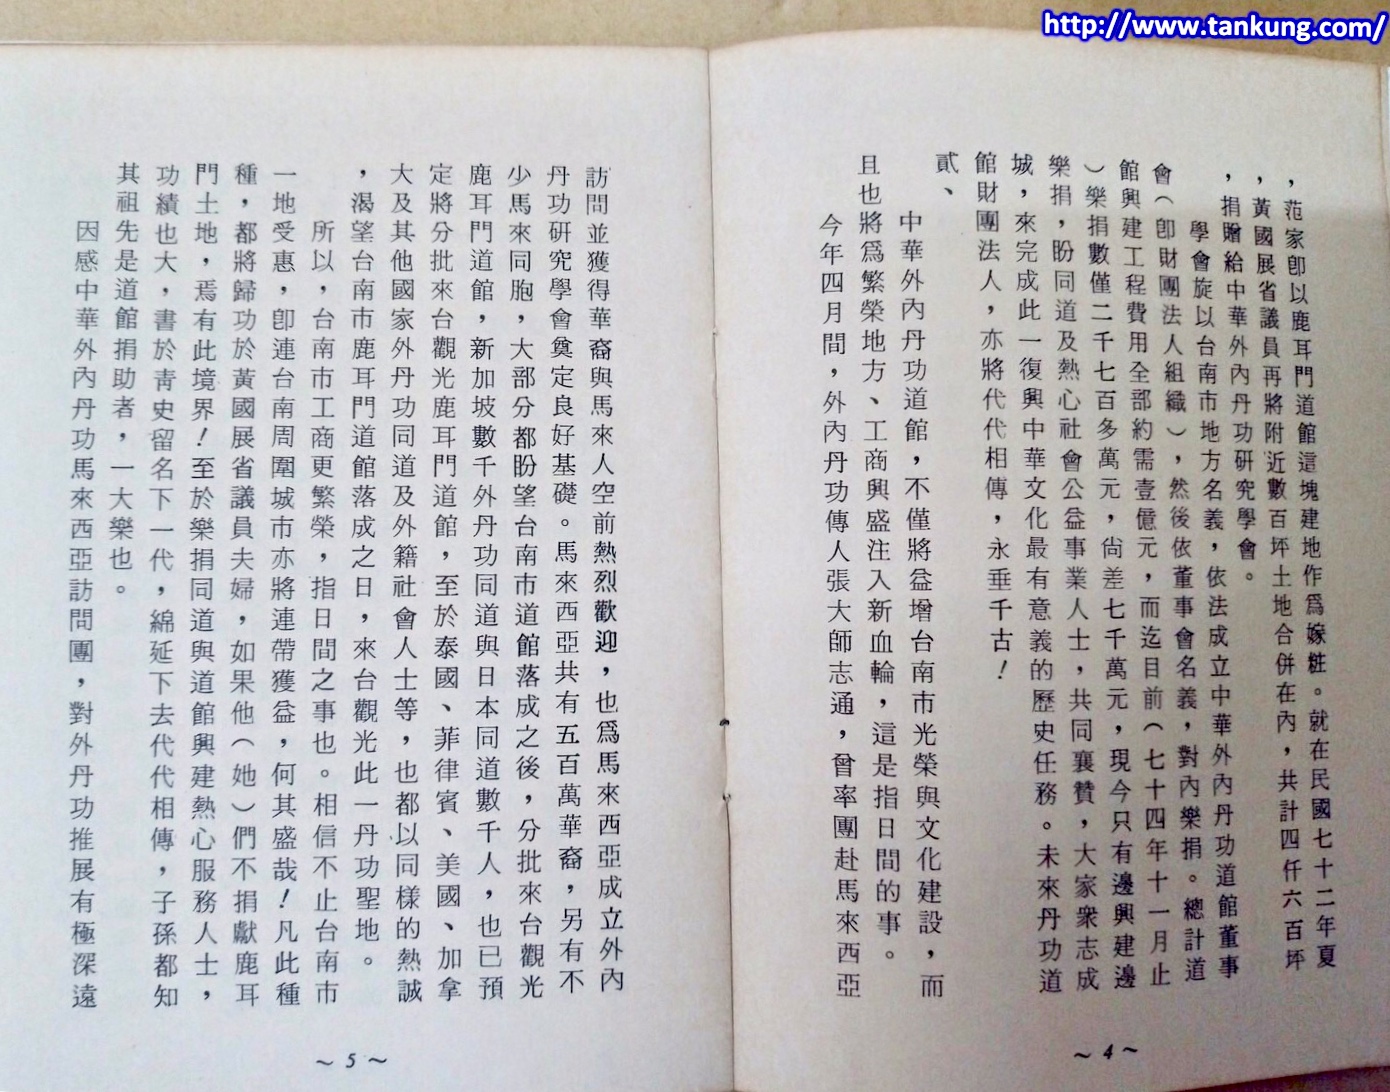 http://www.tankung.com/
，范家卽以鹿耳門道館這塊建地作爲嫁粧。就在民國七十二年夏
，黃國展省議員再將附近數百坪土地合併在內，共計四仟六百坪
，捐贈給中華外內丹功研究學會。
學會旋以台南市地方名義，依法成立中華外內丹功道館董事
會（卽財團法人組織），然後依董事會名義，對內樂捐。總計道
館興建工程費用全部約需壹億元，而迄目前（七十四年十一月止
）樂捐數僅二千七百多萬元，尙差七千萬元，現今只有邊興建邊
樂捐，盼同道及熱心社會公益事業人士，共同襄贊，大家衆志成
城，來完成此一復興中華文化最有意義的歷史任務。未來丹功道
館財團法人，亦將代代相傳，永垂千古！
貳、
中華外內丹功道館，不僅將益增台南市光榮與文化建設，而
且也將爲繁榮地方、工商興盛注入新血輪，這是指日間的事。
今年四月間，外內丹功傳人張大師志通，曾率團赴馬來西亞
～4～
訪問並獲得華裔與馬來人空前熱烈歡迎，也爲馬來西亞成立外內
丹功研究學會奠定良好基礎。馬來西亞共有五百萬華裔，另有不
少馬來同胞，大部分都盼望台南市道館落成之後，分批來台觀光
鹿耳門道館，新加坡數千外丹功同道與日本同道數千人，也已預
定將分批來台觀光鹿耳門道館，至於泰國、菲律賓、美國、加拿
大及其他國家外丹功同道及外籍社會人士等，也都以同樣的熱誠
，渴望台南市鹿耳門道館落成之日，來台觀光此一丹功聖地。
所以，台南市工商更繁榮，指日間之事也。相信不止台南市
一地受惠，卽連台南周圍城市亦將連帶獲益，何其盛哉！凡此種
種，都將歸功於黃國展省議員夫婦，如果他（她）們不捐獻鹿耳
門土地，焉有此境界！至於樂捐同道與道館興建熱心服務人士，
功績也大，書於靑史留名下一代，綿延下去代代相傳，子孫都知
其祖先是道館捐助者，一大樂也。
因感中華外內丹功馬來西亞訪問團，對外丹功推展有極深遠
～5～